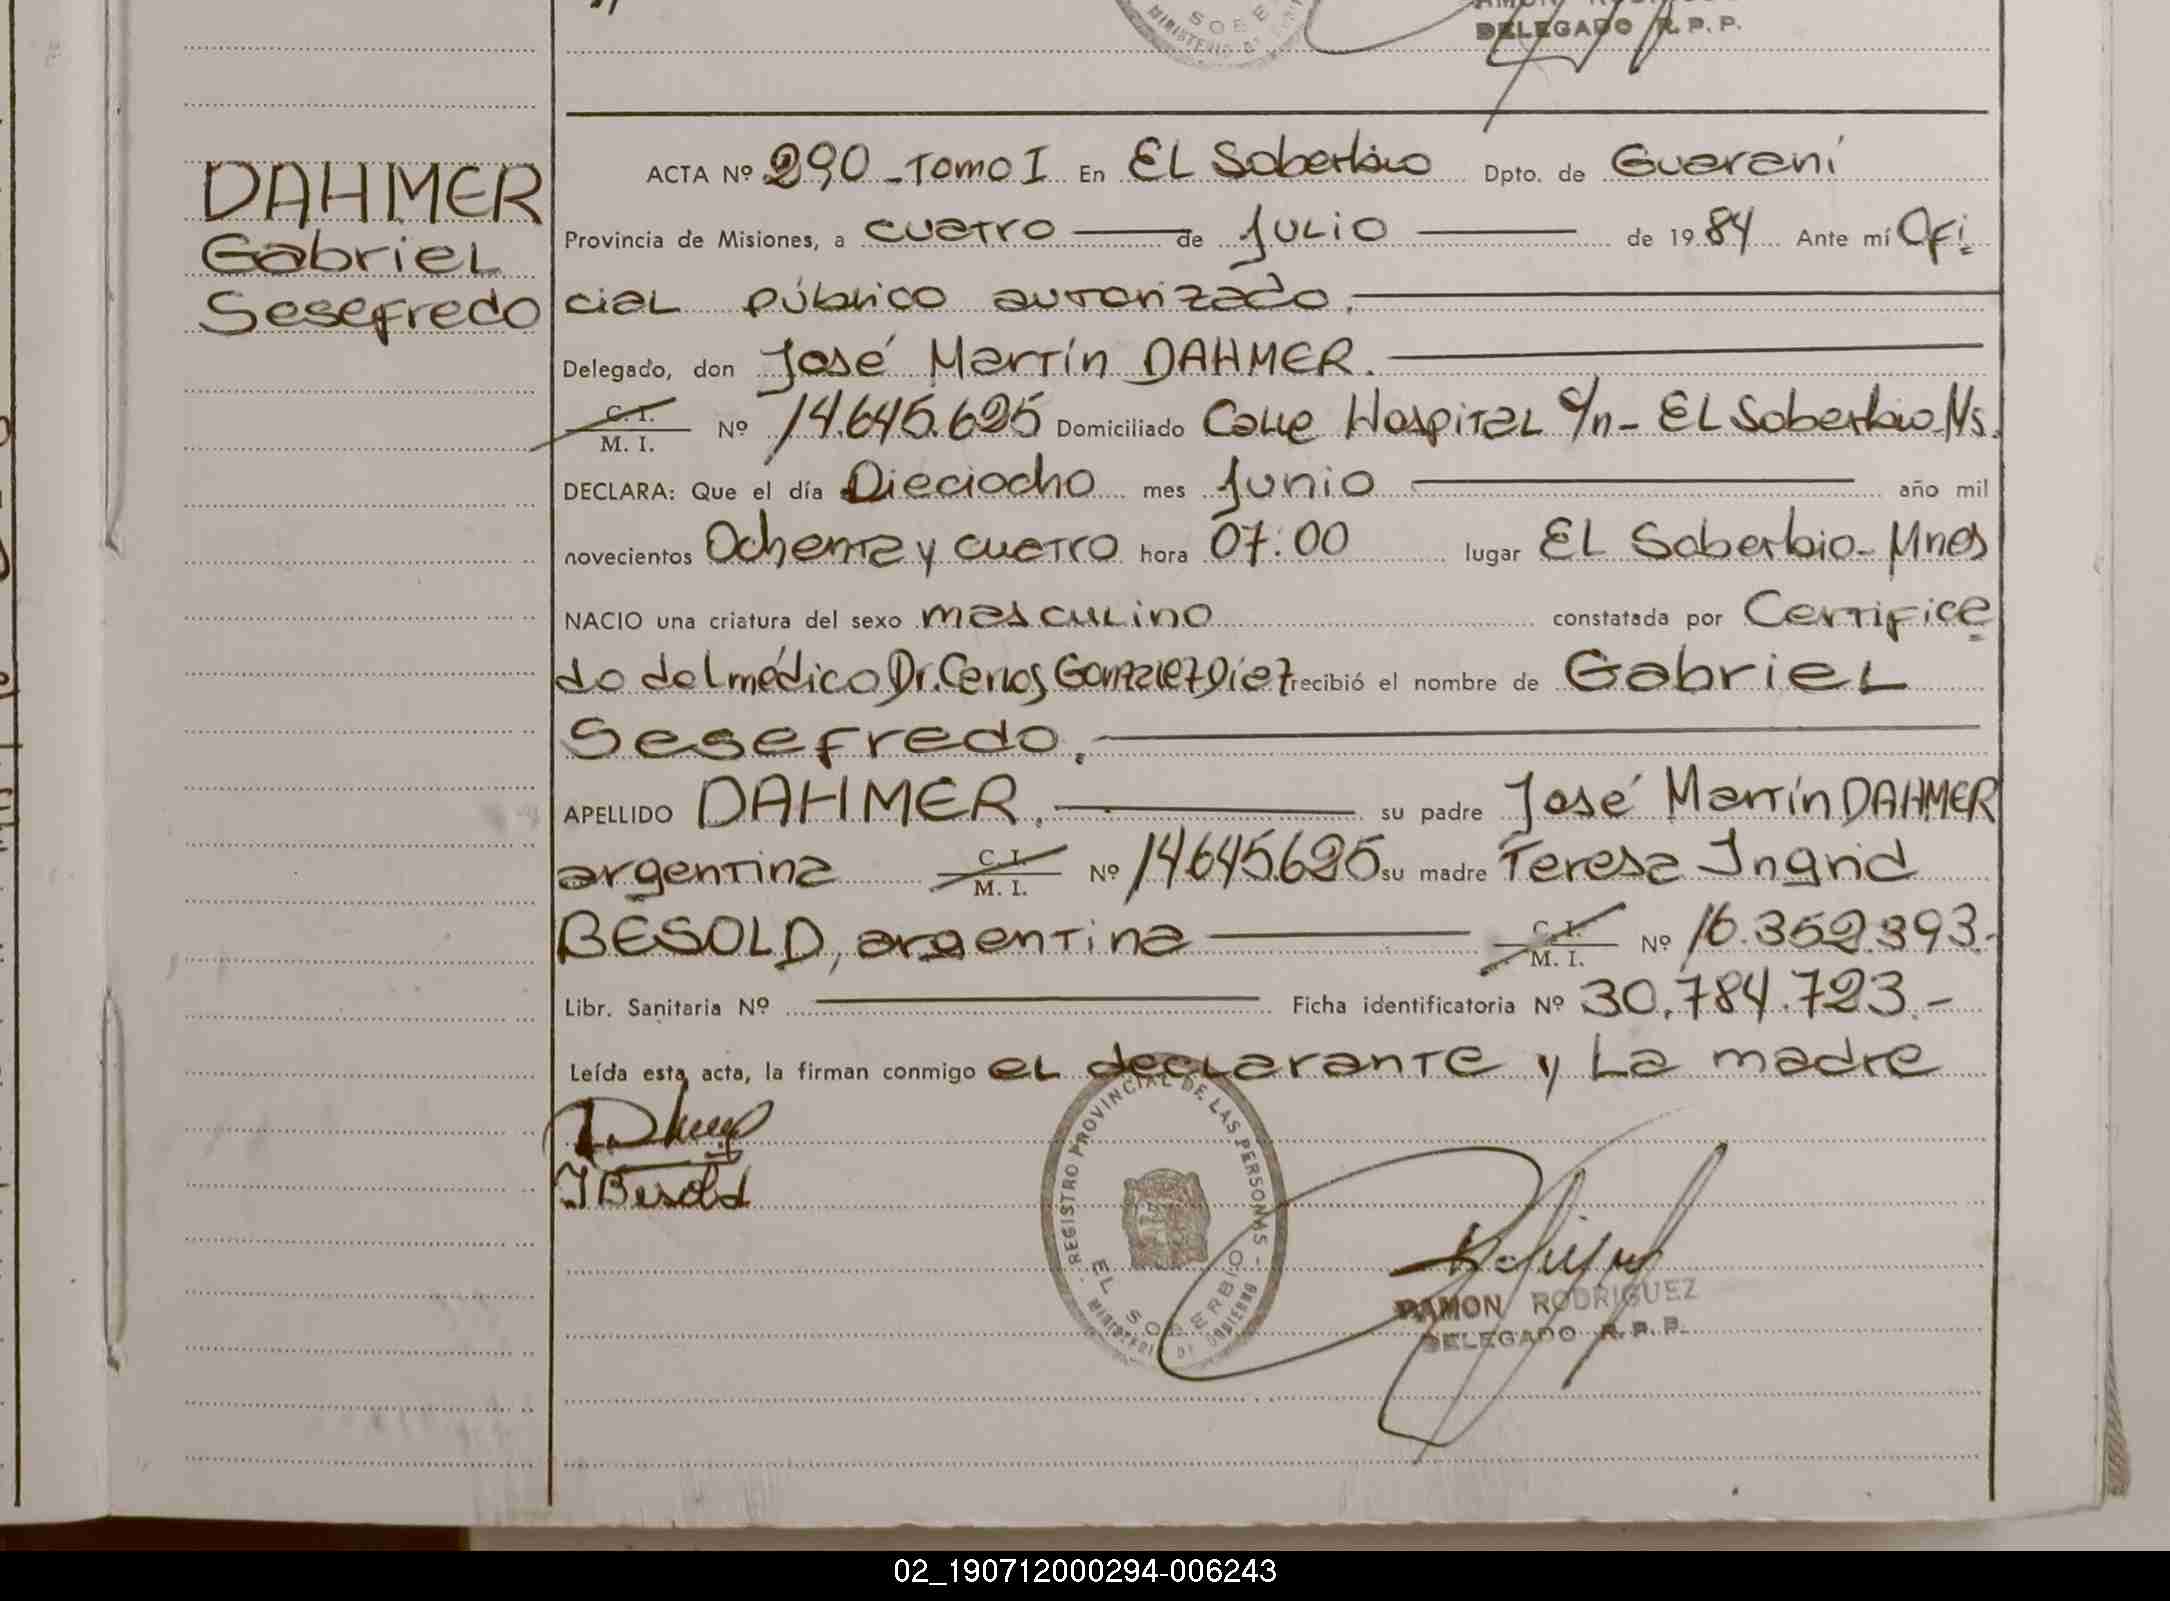 DELEGADO R. P. P.
DAHMER
Gabriel
Sesefredo
ACTA Nº 290 - Tomo I En EL Soberbio Dpto. de Guaraní
Provincia de Misiones, a cuatro de Julio de 1984 Ante mí Ofi
cial público autorizado.
Delegado, don José Martín DAHMER.
C. I. M. I. Nº 14.645.625 Domiciliado Calle Hospital s/n - EL Soberbio Ms.
DECLARA: Que el día Dieciocho mes Junio año mil
novecientos Ochenta y cuatro hora 07:00 lugar EL Soberbio - Mnes
NACIO una criatura del sexo masculino constatada por Certifica
do del médico Dr. Carlos Gonzalez Diez recibió el nombre de Gabriel
Sesefredo.
APELLIDO DAHMER. su padre José Martín DAHMER
argentina C. I. M. I. Nº 14.645.625 su madre Teresa Ingrid
BESOLD, argentina C. I. M. I. Nº 16.352.393.-
Libr. Sanitaria Nº Ficha identificatoria Nº 30.784.723.-
Leída esta acta, la firman conmigo el declarante y La madre
I Besold
REGISTRO PROVINCIAL DE LAS PERSONAS -
EL SOBERBIO
MINISTERIO DE GOBIERNO
RAMON RODRIGUEZ
DELEGADO R. P. P.
02_190712000294-006243